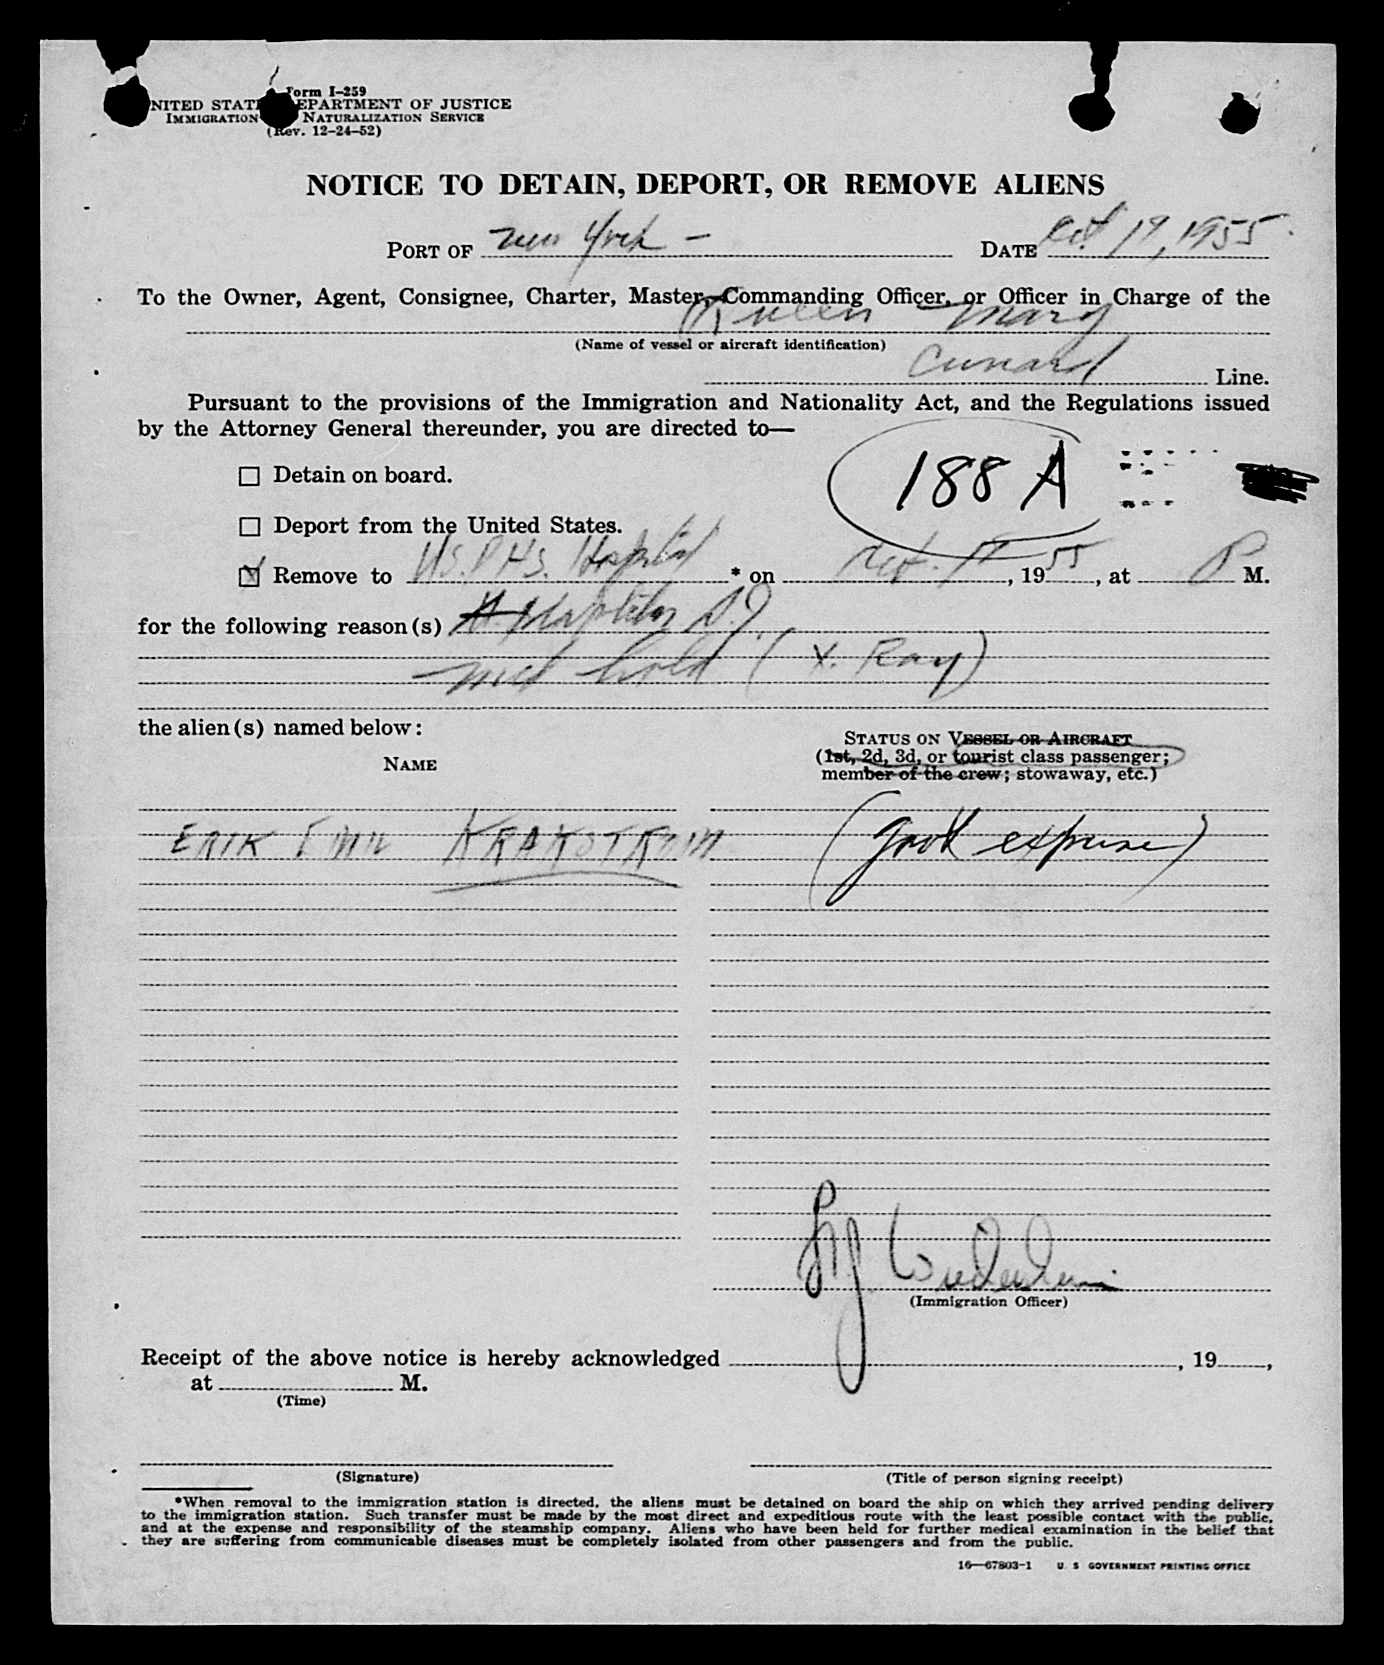 Form I-259
UNITED STATES DEPARTMENT OF JUSTICE
IMMIGRATION NATURALIZATION SERVICE
(Rev. 12-24-52)
NOTICE TO DETAIN, DEPORT, OR REMOVE ALIENS
PORT OF New York - DATE Oct 19, 1955
To the Owner, Agent, Consignee, Charter, Master, Commanding Officer, or Officer in Charge of the
Queen Mary
(Name of vessel or aircraft identification)
Cunard Line.
Pursuant to the provisions of the Immigration and Nationality Act, and the Regulations issued
by the Attorney General thereunder, you are directed to—
188 A
Detain on board.
Deport from the United States.
Remove to U.S.P.H.S. Hospital * on Oct. 19, 1955, at P M.
for the following reason(s) Stapleton S.I.
med hold (X. Ray)
the alien(s) named below:
STATUS ON VESSEL OR AIRCRAFT
NAME
(1st, 2d, 3d, or tourist class passenger;
member of the crew; stowaway, etc.)
ERIK EMIL KRAKSTROM (govt expense)
(Immigration Officer)
Receipt of the above notice is hereby acknowledged , 19 ,
at M.
(Time)
(Signature) (Title of person signing receipt)
*When removal to the immigration station is directed, the aliens must be detained on board the ship on which they arrived pending delivery
to the immigration station. Such transfer must be made by the most direct and expeditious route with the least possible contact with the public,
and at the expense and responsibility of the steamship company. Aliens who have been held for further medical examination in the belief that
they are suffering from communicable diseases must be completely isolated from other passengers and from the public.
16—67803-1 U. S. GOVERNMENT PRINTING OFFICE